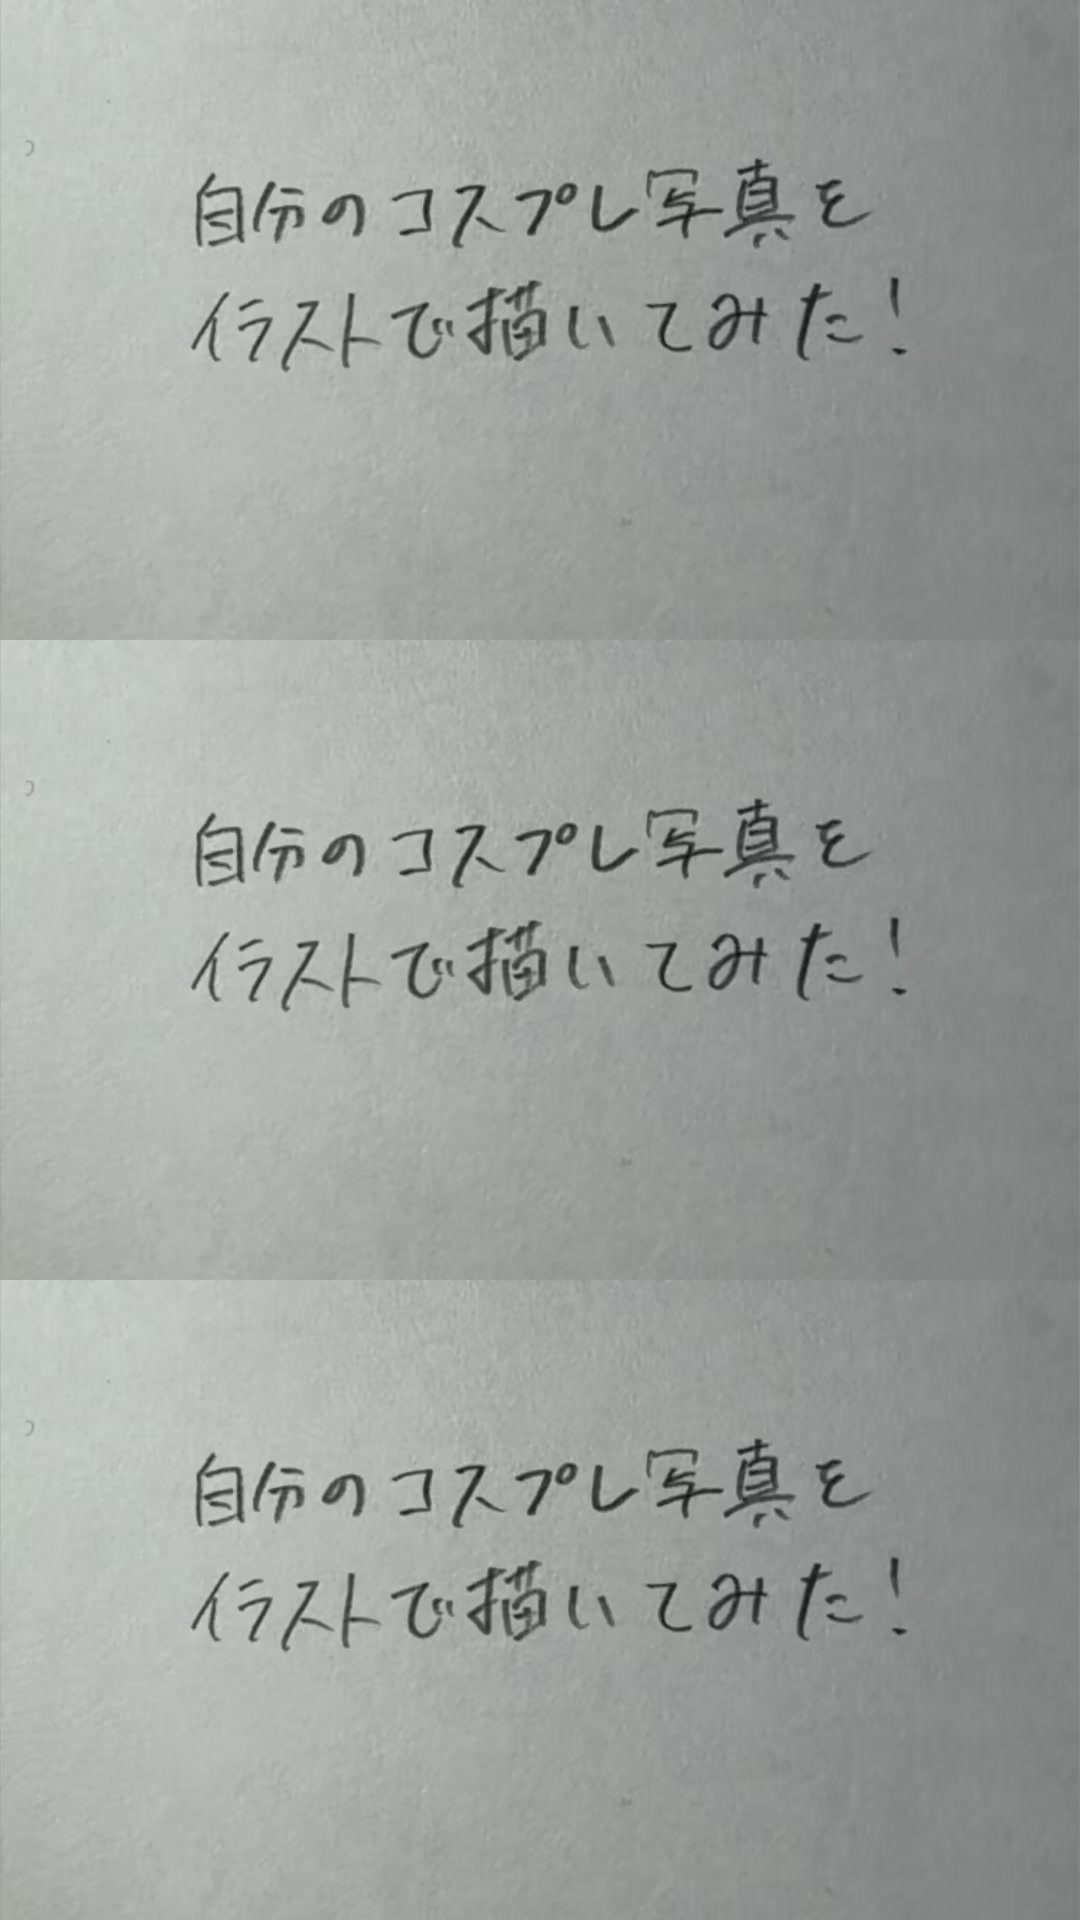 自分のコスプレ写真を
イラストで描いてみた!
自分のコスプレ写真を
イラストで描いてみた!
自分のコスプレ写真を
イラストで描いてみた!